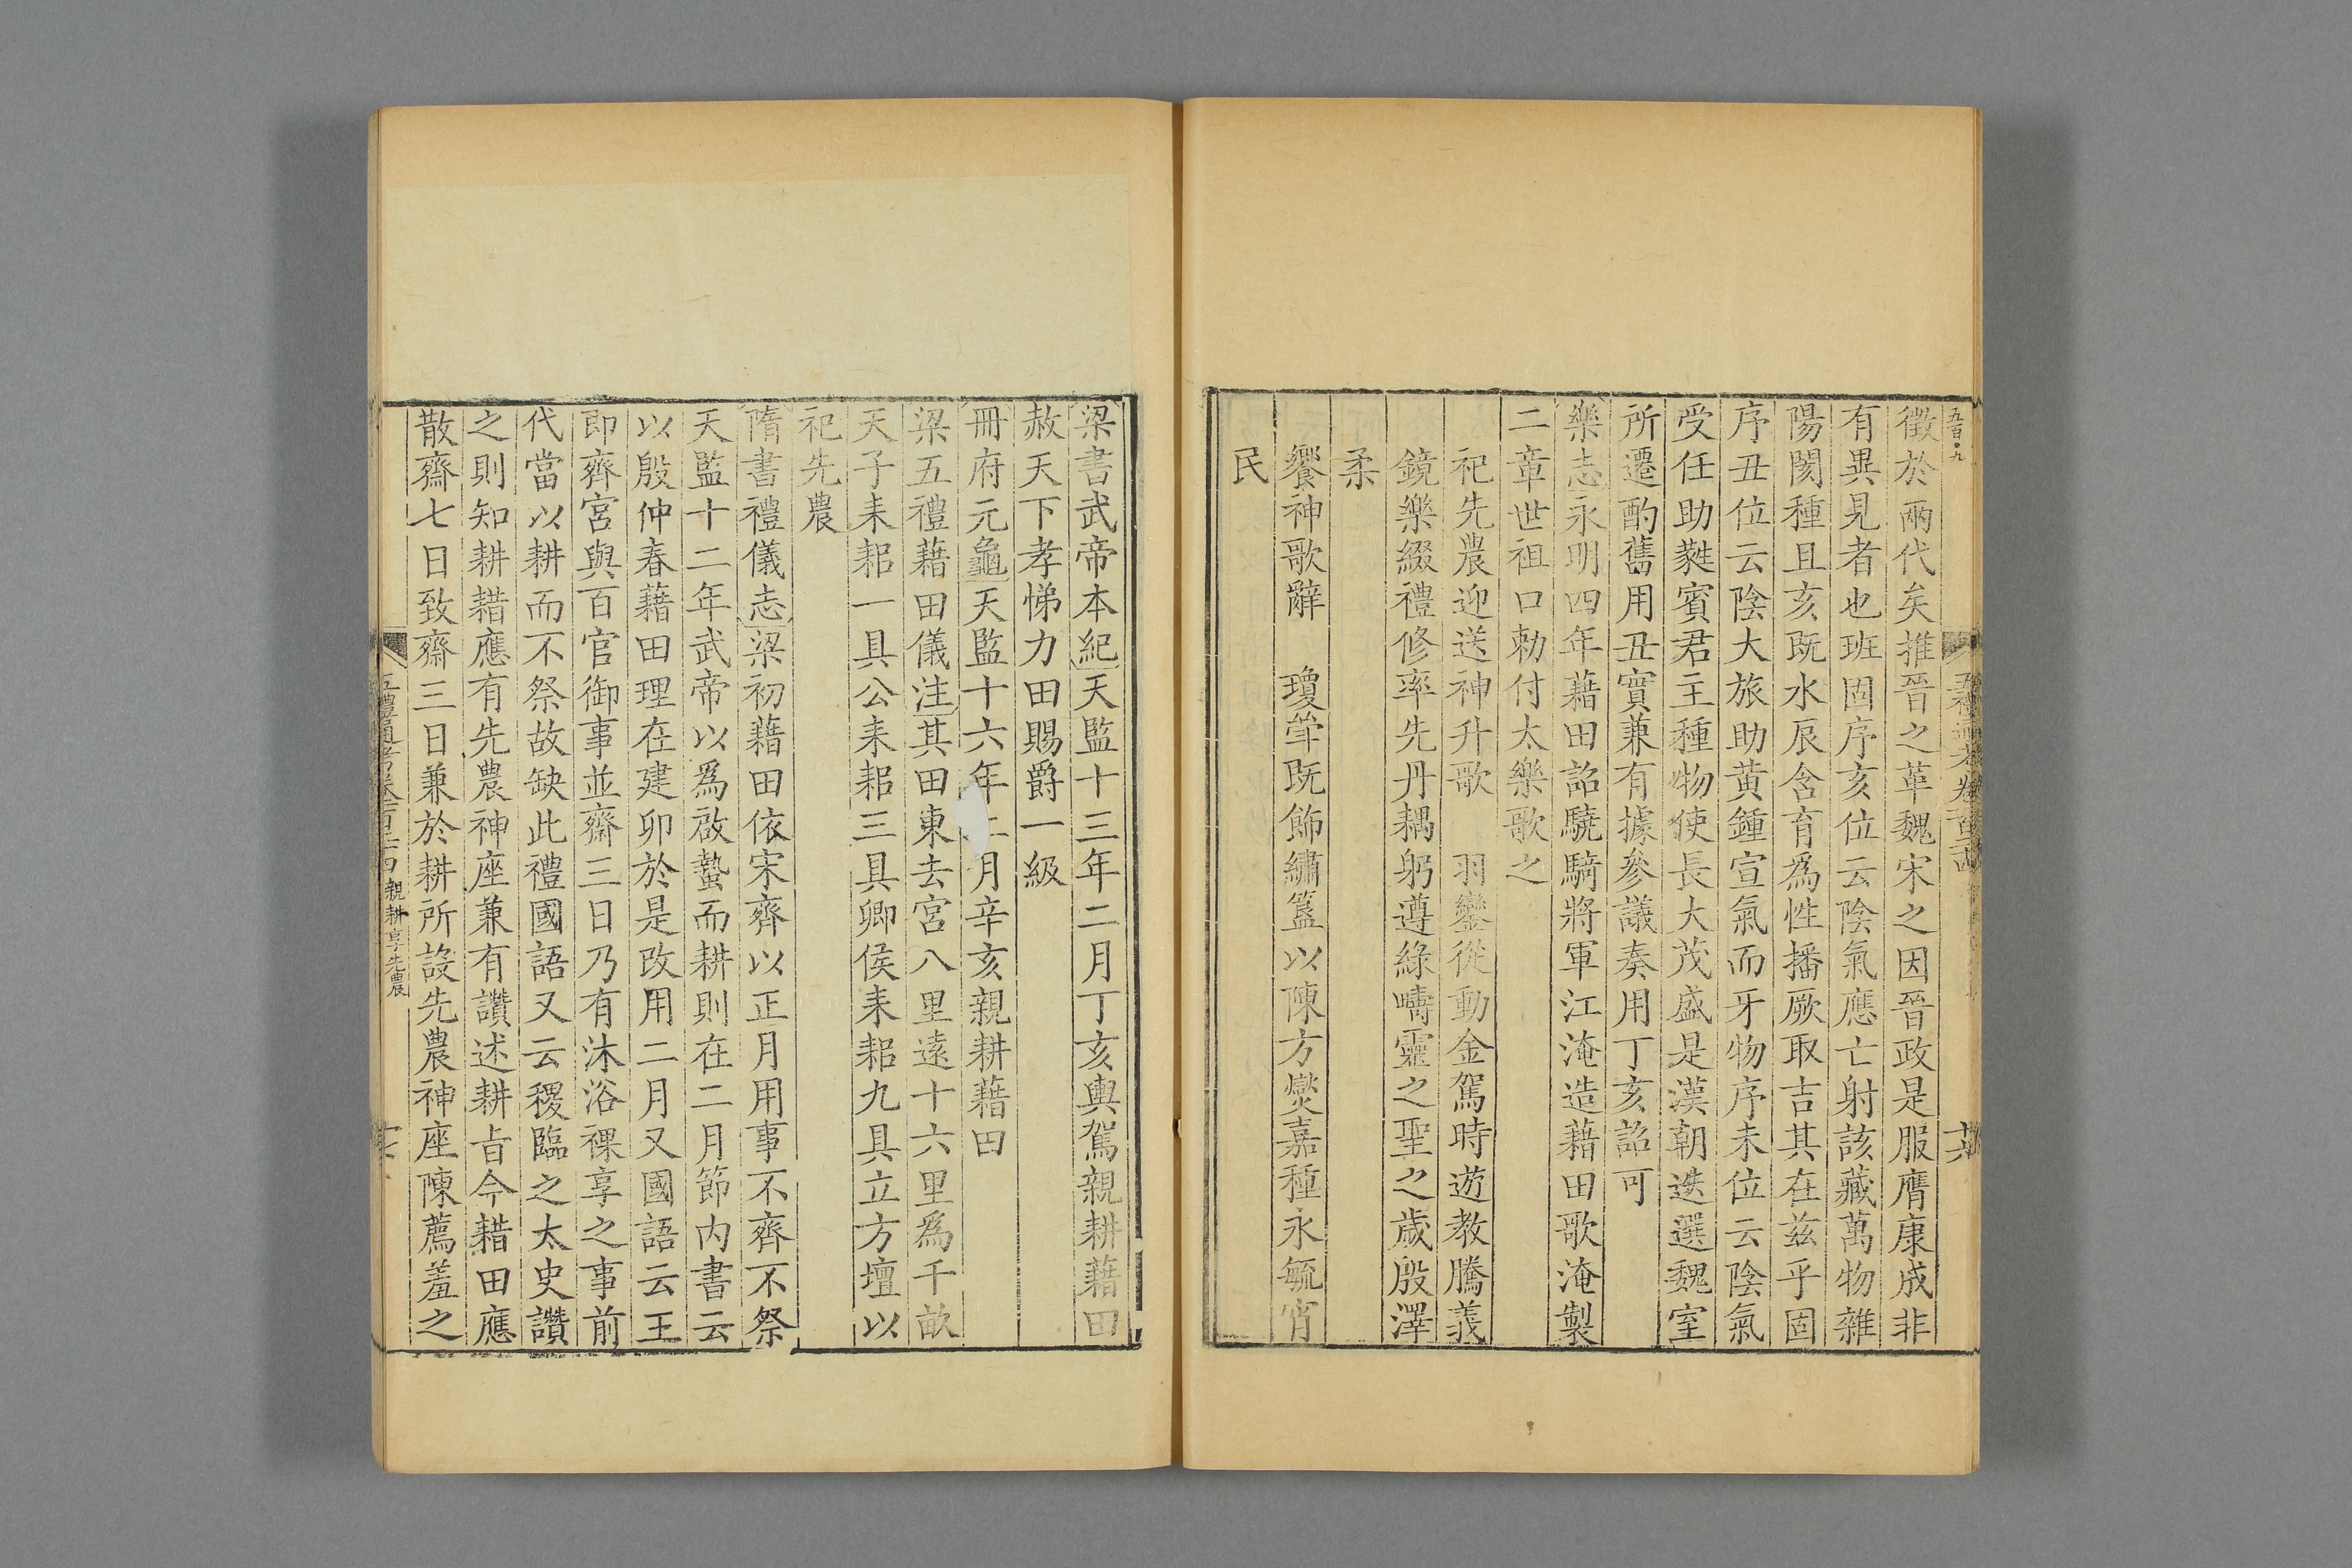 五百九
十六
徵於兩代矣推晉之革魏宋之因晉政是服膺康成非
有異見者也班固序亥位云陰氣應亡射該藏萬物雜
陽閡種且亥既水辰含育爲性播厥取吉其在茲乎固
序丑位云陰大旅助黃鍾宣氣而牙物序未位云陰氣
受任助蕤賓君主種物使長大茂盛是漢朝迭選魏室
所遷酌舊用丑實兼有據參議奏用丁亥詔可
樂志永明四年藉田詔驍騎將軍江淹造藉田歌淹製
二章世祖口勅付太樂歌之
祀先農迎送神升歌 羽鑾從動金駕時遊教騰義
鏡樂綴禮修率先丹耦躬遵綠疇靈之聖之歲殷澤
柔
饗神歌辭 瓊斝既飾繡簋以陳方燮嘉種永毓宵
民
梁書武帝本紀天監十三年二月丁亥輿駕親耕藉田
赦天下孝悌力田賜爵一級
冊府元龜天監十六年二月辛亥親耕藉田
梁五禮藉田儀注其田東去宮八里遠十六里爲千畝
天子耒耜一具公耒耜三具卿侯耒耜九具立方壇以
祀先農
隋書禮儀志梁初藉田依宋齊以正月用事不齊不祭
天監十二年武帝以爲啟蟄而耕則在二月節內書云
以殷仲春藉田理在建卯於是改用二月又國語云王
即齊宮與百官御事並齋三日乃有沐浴祼享之事前
代當以耕而不祭故缺此禮國語又云稷臨之太史讚
之則知耕耤應有先農神座兼有讚述耕旨今耤田應
散齋七日致齋三日兼於耕所設先農神座陳薦羞之
親耕享先農